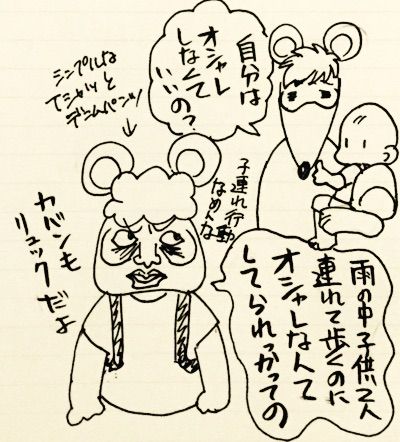 自分は
オシャレ
しなくて
いいの?
シンプルな
Tシャツと
デニムパンツ
子連れ行動
なめんな
カバンも
リュックだよ
雨の中子供2人
連れて歩くのに
オシャレなんて
してられっかっての